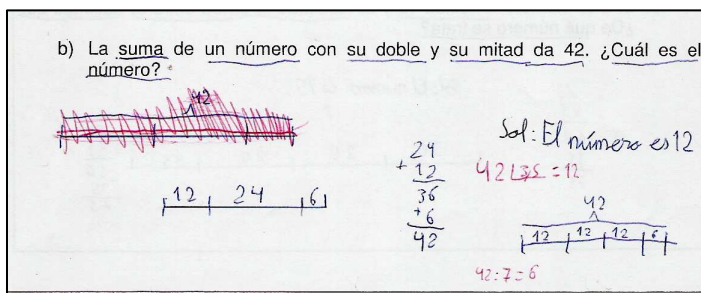 b) La suma de un número con su doble y su mitad da 42. ¿Cuál es el
número?
42
12 24 6
24
+ 12
36
+ 6
42
Sol: El número es 12
42 | 3,5 = 12
42
12 12 12 6
42:7=6